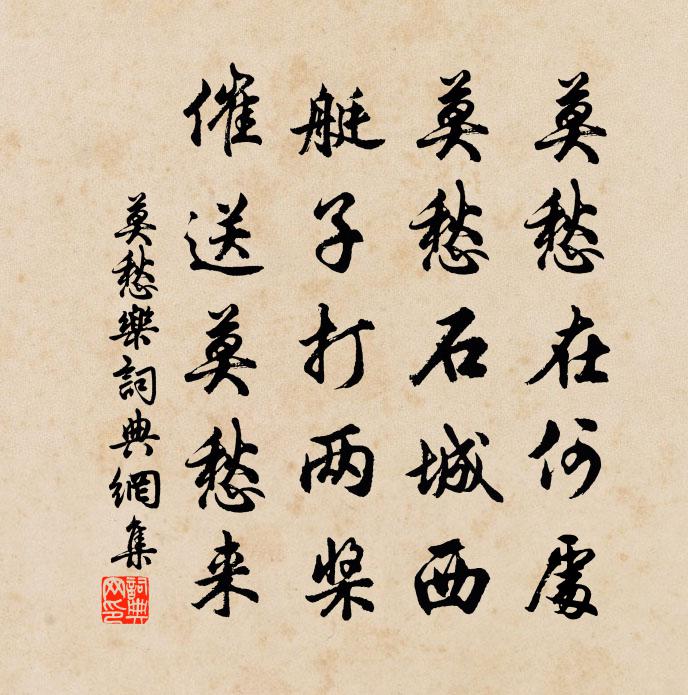 莫愁在何處
莫愁石城西
艇子打两槳
催送莫愁来
莫愁樂詞典網集
詞典网印